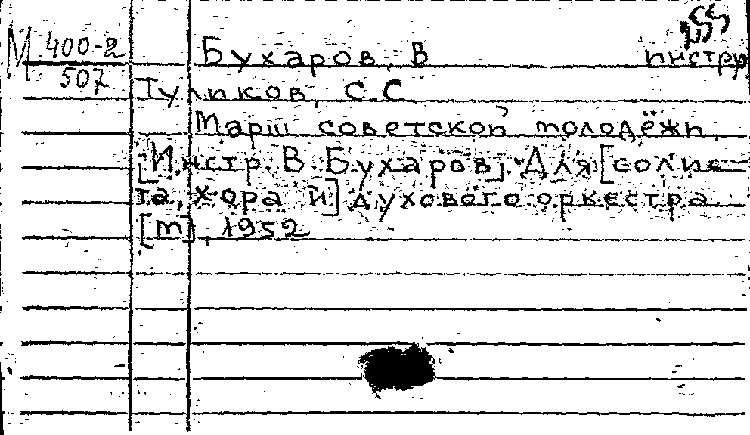 М 400-2 Бухаров, В инстр
507 Туликов, С.С.
Марш советской молодёжи.
[Инстр. В. Бухаров]. Для [солис-
та, хора и] духового оркестра
[m], 1952